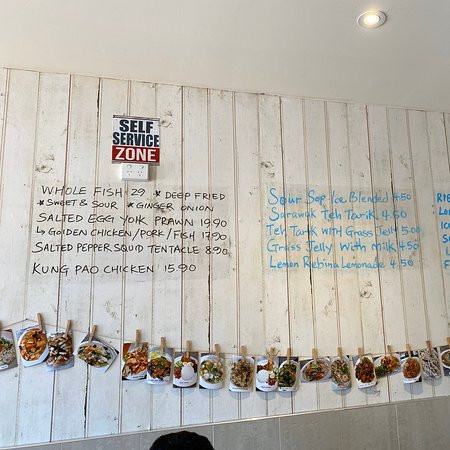 SELF
SERVICE
ZONE
WHOLE FISH 29 * DEEP FRIED
* SWEET & SOUR * GINGER ONION
SALTED EGG YOLK PRAWN 19.90
↳ GOLDEN CHICKEN/PORK/FISH 17.90
SALTED PEPPER SQUID TENTACLE 8.90
KUNG PAO CHICKEN 15.90
Sour Sop Ice Blended 4.50
Sarawak Teh Tarik 4.50
Teh Tarik With Grass Jelly 5.00
Grass Jelly With Milk 4.50
Lemon Rebina Lemonade 4.50